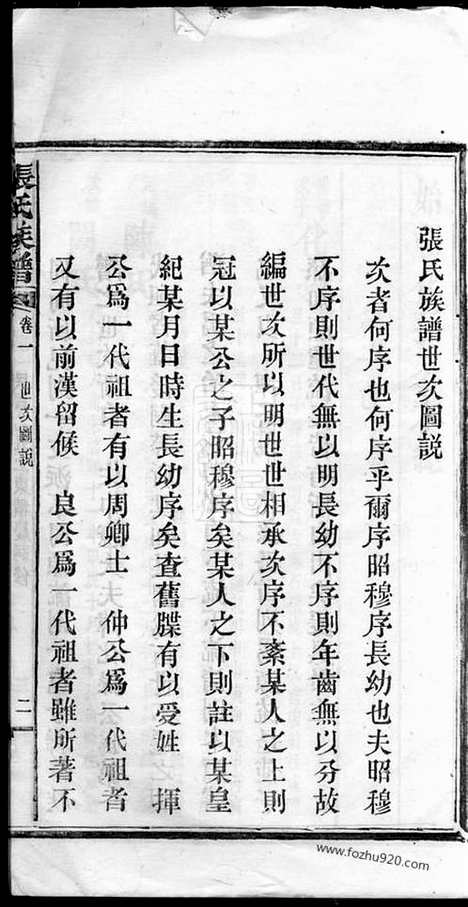 張氏族譜世次圖説
次者何序也何序乎爾序昭穆序長幼也夫昭穆
不序則世代無以明長幼不序則年齒無以分故
編世次所以明世世相承次序不紊某人之上則
冠以某公之子昭穆序矣某人之下則註以某皇
紀某月日時生長幼序矣查舊牒有以受姓 揮
公爲一代祖者有以周卿士 仲公爲一代祖者
又有以前漢留候 良公爲一代祖者雖所著不
張氏族譜 卷一 世次圖説 二
www.fozhu920.com